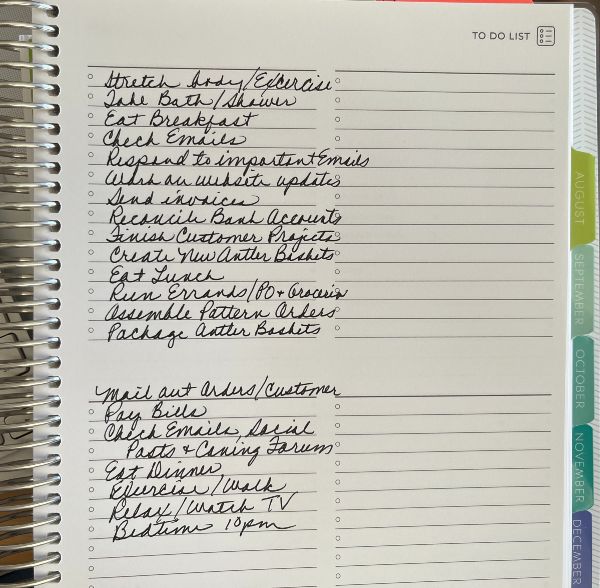 TO DO LIST
Stretch body/Excercise
Take Bath/Shower
Eat Breakfast
Check Emails
Respond to important Emails
Work on website updates
Send invoices
Reconcile Bank Accounts
Finish Customer Projects
Create New Antler Baskets
Eat Lunch
Run Errands/PO + Groceries
Assemble Pattern Orders
Package Antler Baskets
Mail out Orders/Customer
Pay Bills
Check Emails, Social
Posts + Caning Forum
Eat Dinner
Exercise/Walk
Relax/Watch TV
Bedtime 10pm
AUGUST
SEPTEMBER
OCTOBER
NOVEMBER
DECEMBER